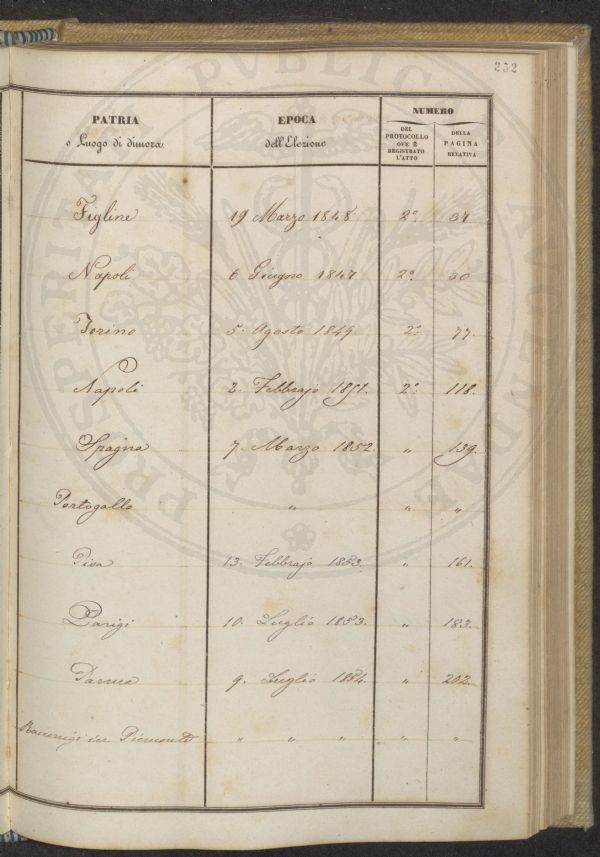 232
PROSPERITATI PUBLICAE AUGENDAE
NUMERO
PATRIA EPOCA DEL DELLA
o Luogo di dimora dell'Elezione PROTOCOLLO PAGINA
OVE È RELATIVA
REGISTRATO
L'ATTO
Figline 19 Marzo 1848 2º 34
Napoli 6 Giugno 1847 2º 30
Torino 5. Agosto 1849 2º 77.
Napoli 2. Febbrajo 1851. 2º 118.
Spagna 7. Marzo 1852 " 139.
Portogallo " " "
Pisa 13. Febbrajo 1853. " 161.
Parigi 10. Luglio 1853. " 183.
Parma 9. Luglio 1854. " 202.
in Piemonte " " " " "